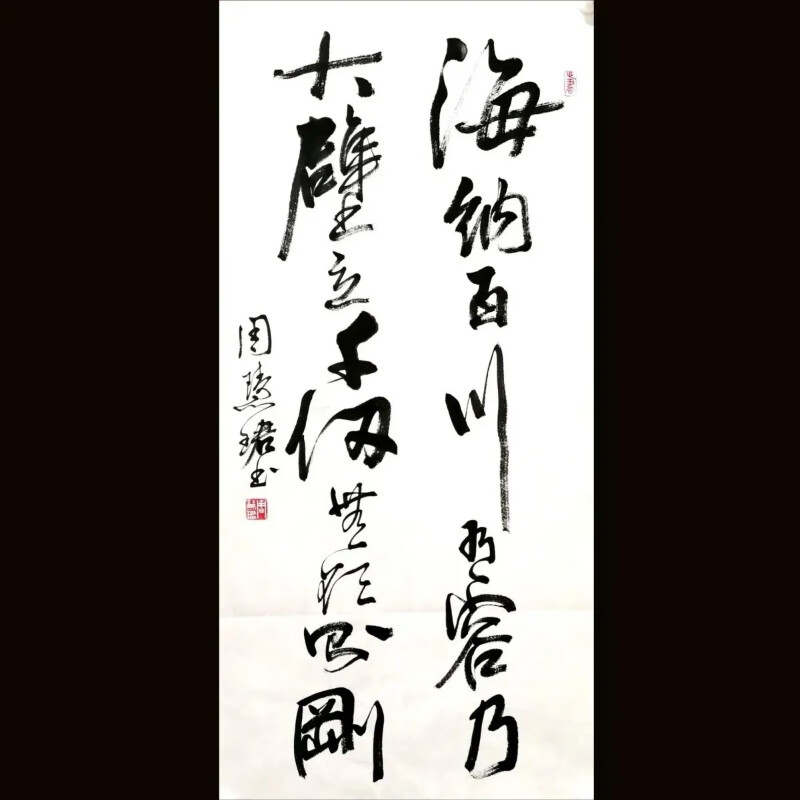 海納百川有容乃
大壁立千仞無欲則剛
周慧珺书